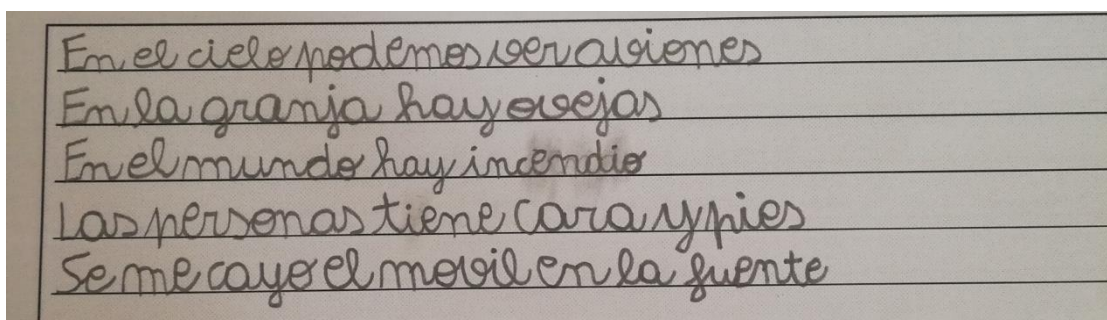 En el cielo podemos ver aviones
En la granja hay ovejas
En el mundo hay incendio
Las personas tiene cara y pies
Se me cayo el movil en la fuente